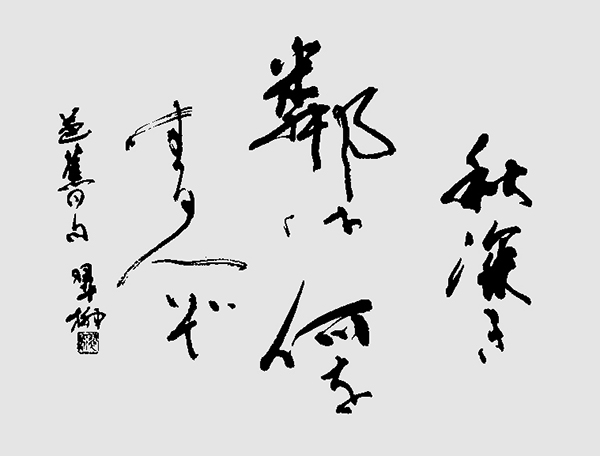 秋深き
鄰は何を
する人ぞ
芭蕉の句